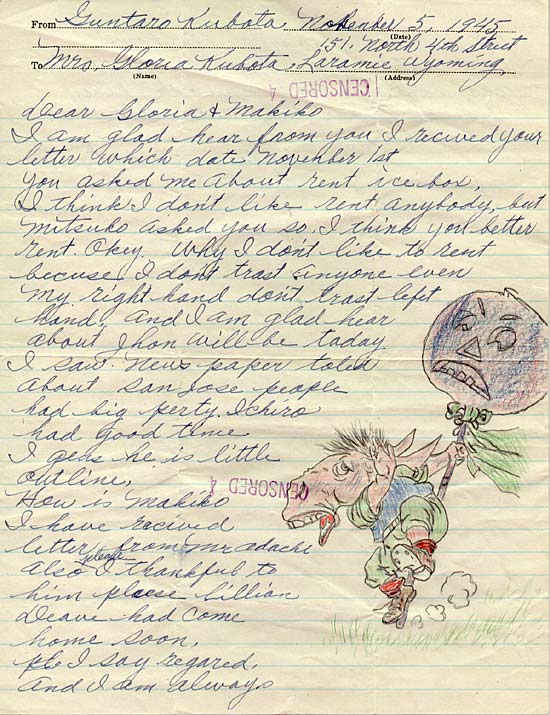 From Guntaro Kubota November 5, 1945
(Date)
151. North 4th Street
To Mrs. Gloria Kubota, Laramie Wyoming,
(Name) (Address)
CENSORED 4
Dear Gloria & Makiko
I am glad hear from you I recived your
letter which date November 1st
you asked me about rent ice box,
I think I don't like rent anybody, but
Mitsuko asked you so. I think you better
rent. Okey. Why I don't like to rent
becuse I don't trast anyone even
my right hand don't trast left
hand, And I am glad hear
about Jhon will be taday
I saw News paper toled
about San Jose people
had big perty, Ichiro
had good time
I gess he is little
outline,
CENSORED 4
How is Makiko
I have recived
letter from Mr adachi
also I thankful to
him please Lillian
Deave had come
home soon,
I say regared,
And I am always